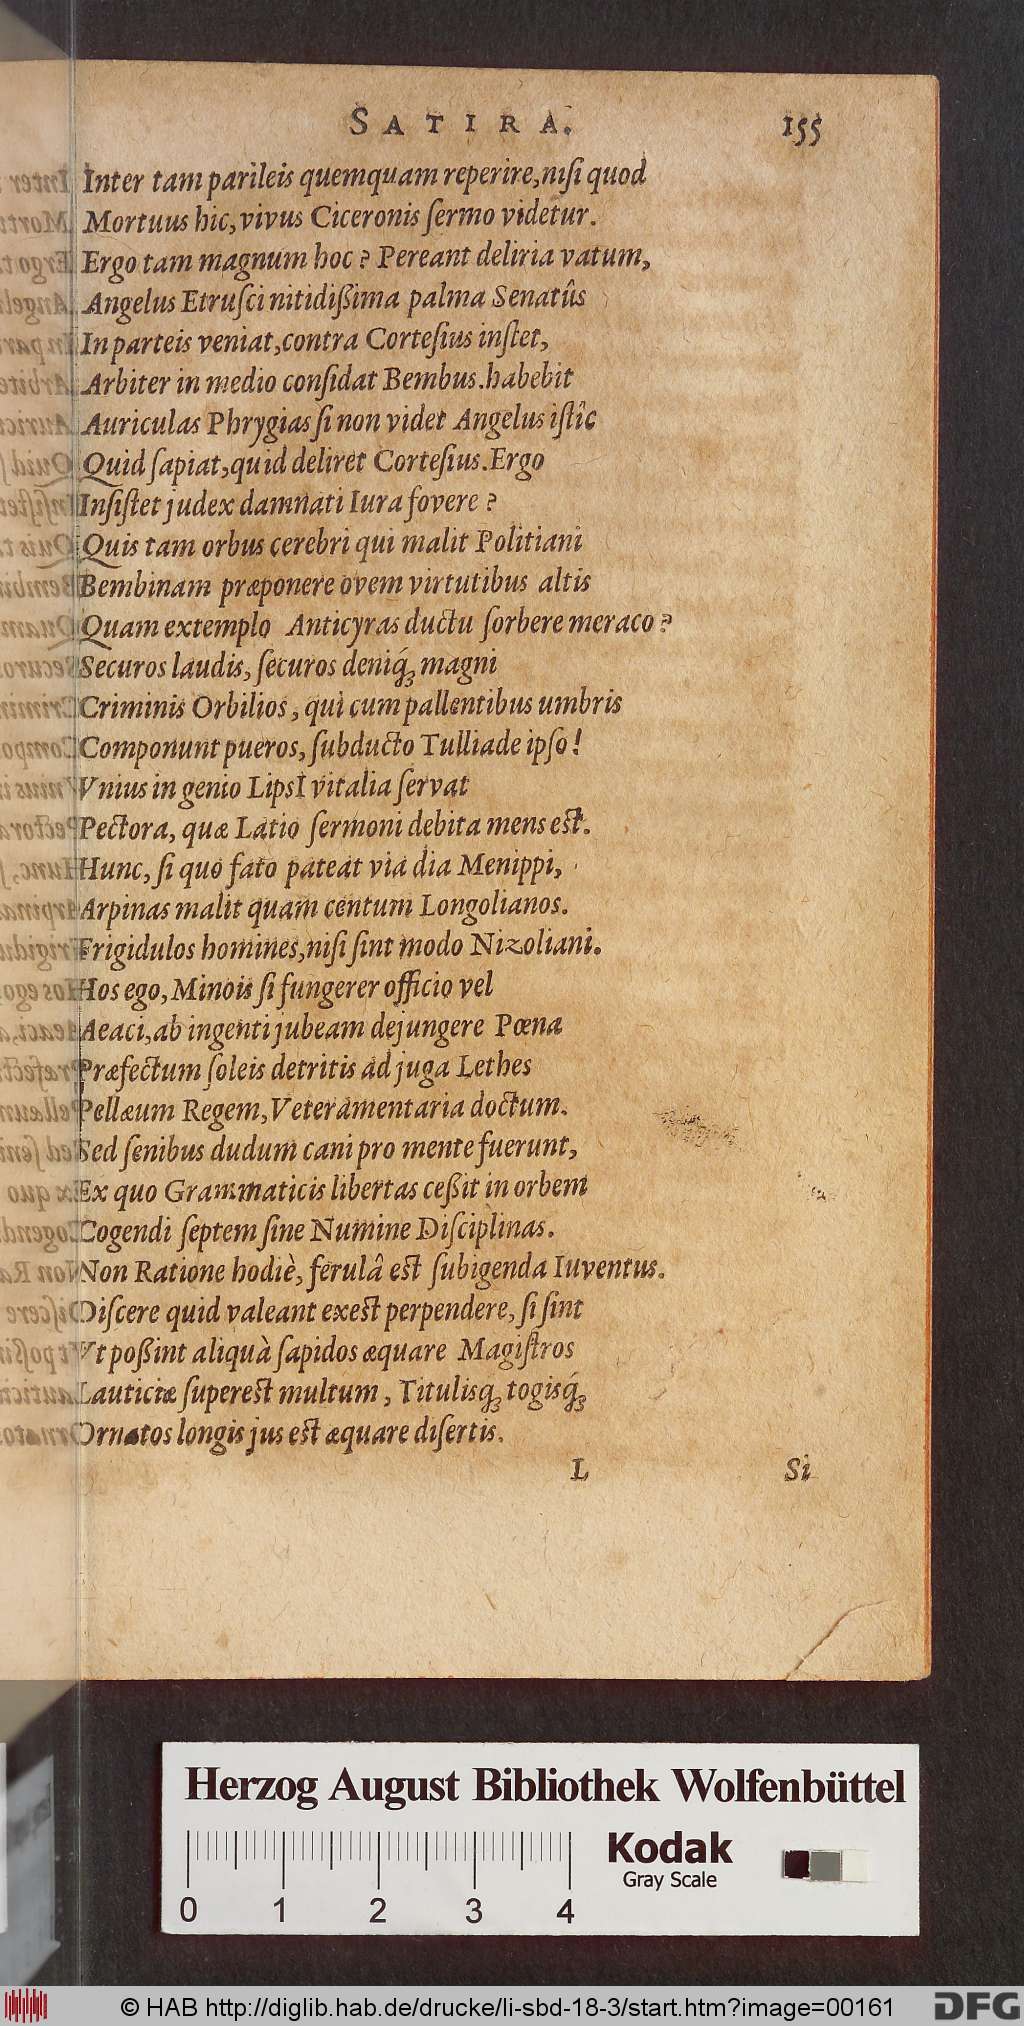 SATIRA. 155
Inter tam parileis quemquam reperire, nisi quod
Mortuus hic, vivus Ciceronis sermo videtur.
Ergo tam magnum hoc? Pereant deliria vatum,
Angelus Etrusci nitidißima palma Senatûs
In parteis veniat, contra Cortesius instet,
Arbiter in medio considat Bembus. habebit
Auriculas Phrygias si non videt Angelus istîc
Quid sapiat, quid deliret Cortesius. Ergo
Insistet judex damnati Iura fovere?
Quis tam orbus cerebri qui malit Politiani
Bembinam præponere ovem virtutibus altis
Quam extemplo Anticyras ductu sorbere meraco?
Securos laudis, securos deniq́; magni
Criminis Orbilios, qui cum pallentibus umbris
Componunt pueros, subducto Tulliade ipso!
Vnius in genio LipsI vitalia servat
Pectora, quæ Latio sermoni debita mens est.
Hunc, si quo fato pateat via dia Menippi,
Arpinas malit quam centum Longolianos.
Frigidulos homines, nisi sint modo Nizoliani.
Hos ego, Minois si fungerer officio vel
Aeaci, ab ingenti jubeam dejungere Pœna
Præfectum soleis detritis ad juga Lethes
Pellæum Regem, Veteramentaria doctum.
Sed senibus dudum cani pro mente fuerunt,
Ex quo Grammaticis libertas ceßit in orbem
Cogendi septem sine Numine Disciplinas.
Non Ratione hodiè, ferulâ est subigenda Iuventus.
Discere quid valeant exest perpendere, si sint
Vt poßint aliquà sapidos æquare Magistros
Lauticiæ superest multum, Titulisq; togisq́;
Ornatos longis jus est æquare disertis.
L Si
Herzog August Bibliothek Wolfenbüttel
Kodak
Gray Scale
0 1 2 3 4
© HAB http://diglib.hab.de/drucke/li-sbd-18-3/start.htm?image=00161
DFG